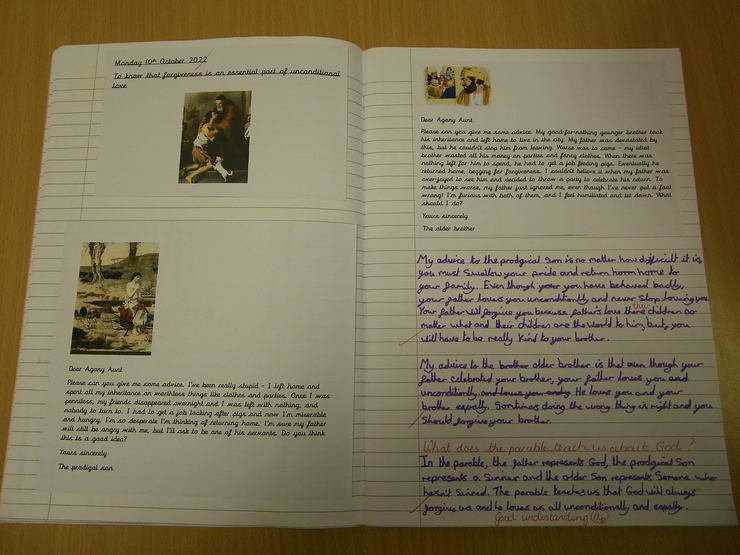 Monday 10th October 2022
To know that forgiveness is an essential part of unconditional
love
Dear Agony Aunt
Please can you give me some advice. I've been really stupid - I left home and
spent all my inheritance on worthless things like clothes and parties. Once I was
penniless, my friends disappeared overnight and I was left with nothing, and
nobody to turn to. I had to get a job looking after pigs and now I'm miserable
and hungry. I'm so desperate I'm thinking of returning home. I'm sure my father
will still be angry with me, but I'll ask to be one of his servants. Do you think
this is a good idea?
Yours sincerely
The prodigal son
Dear Agony Aunt
Please can you give me some advice. My good-for-nothing younger brother took
his inheritance and left home to live in the city. My father was devastated by
this, but he couldn't stop him from leaving. Worse was to come - my idiot
brother wasted all his money on parties and fancy clothes. When there was
nothing left for him to spend, he had to get a job feeding pigs. Eventually he
returned home, begging for forgiveness. I couldn't believe it when my father was
over-joyed to see him and decided to throw a party to celebrate his return. To
make things worse, my father just ignored me, even though I've never put a foot
wrong! I'm furious with both of them, and I feel humiliated and let down. What
should I do?
Yours sincerely
The older brother
My advice to the prodgical Son is no matter how difficult it is,
you must Swallow your pride and return horm home to
your family. Even though your you have behaved badly,
your father loves you unconditionly, and never Stop loving you.
Your father will forgive you because father's love there their children no
matter what and their children are the World to him, but, you
will have to be really kind to your brother.
My advice to the brother older brother is that even though your
father celebrated your brother, your father loves you and
unconditionally, and loves your andy He loves you and your
brother equally. Somtimes doing the wrong thing is right and you
Should forgive your brother.
What does the parable teach us about God?
In the parable, the father represents God, the prodgical Son
represents a Sinner and the older Son represents Somone who
hasn't Sinned. The parable teaches us that God will always
forgive us and he loves us all unconditionally and equally.
Good understanding